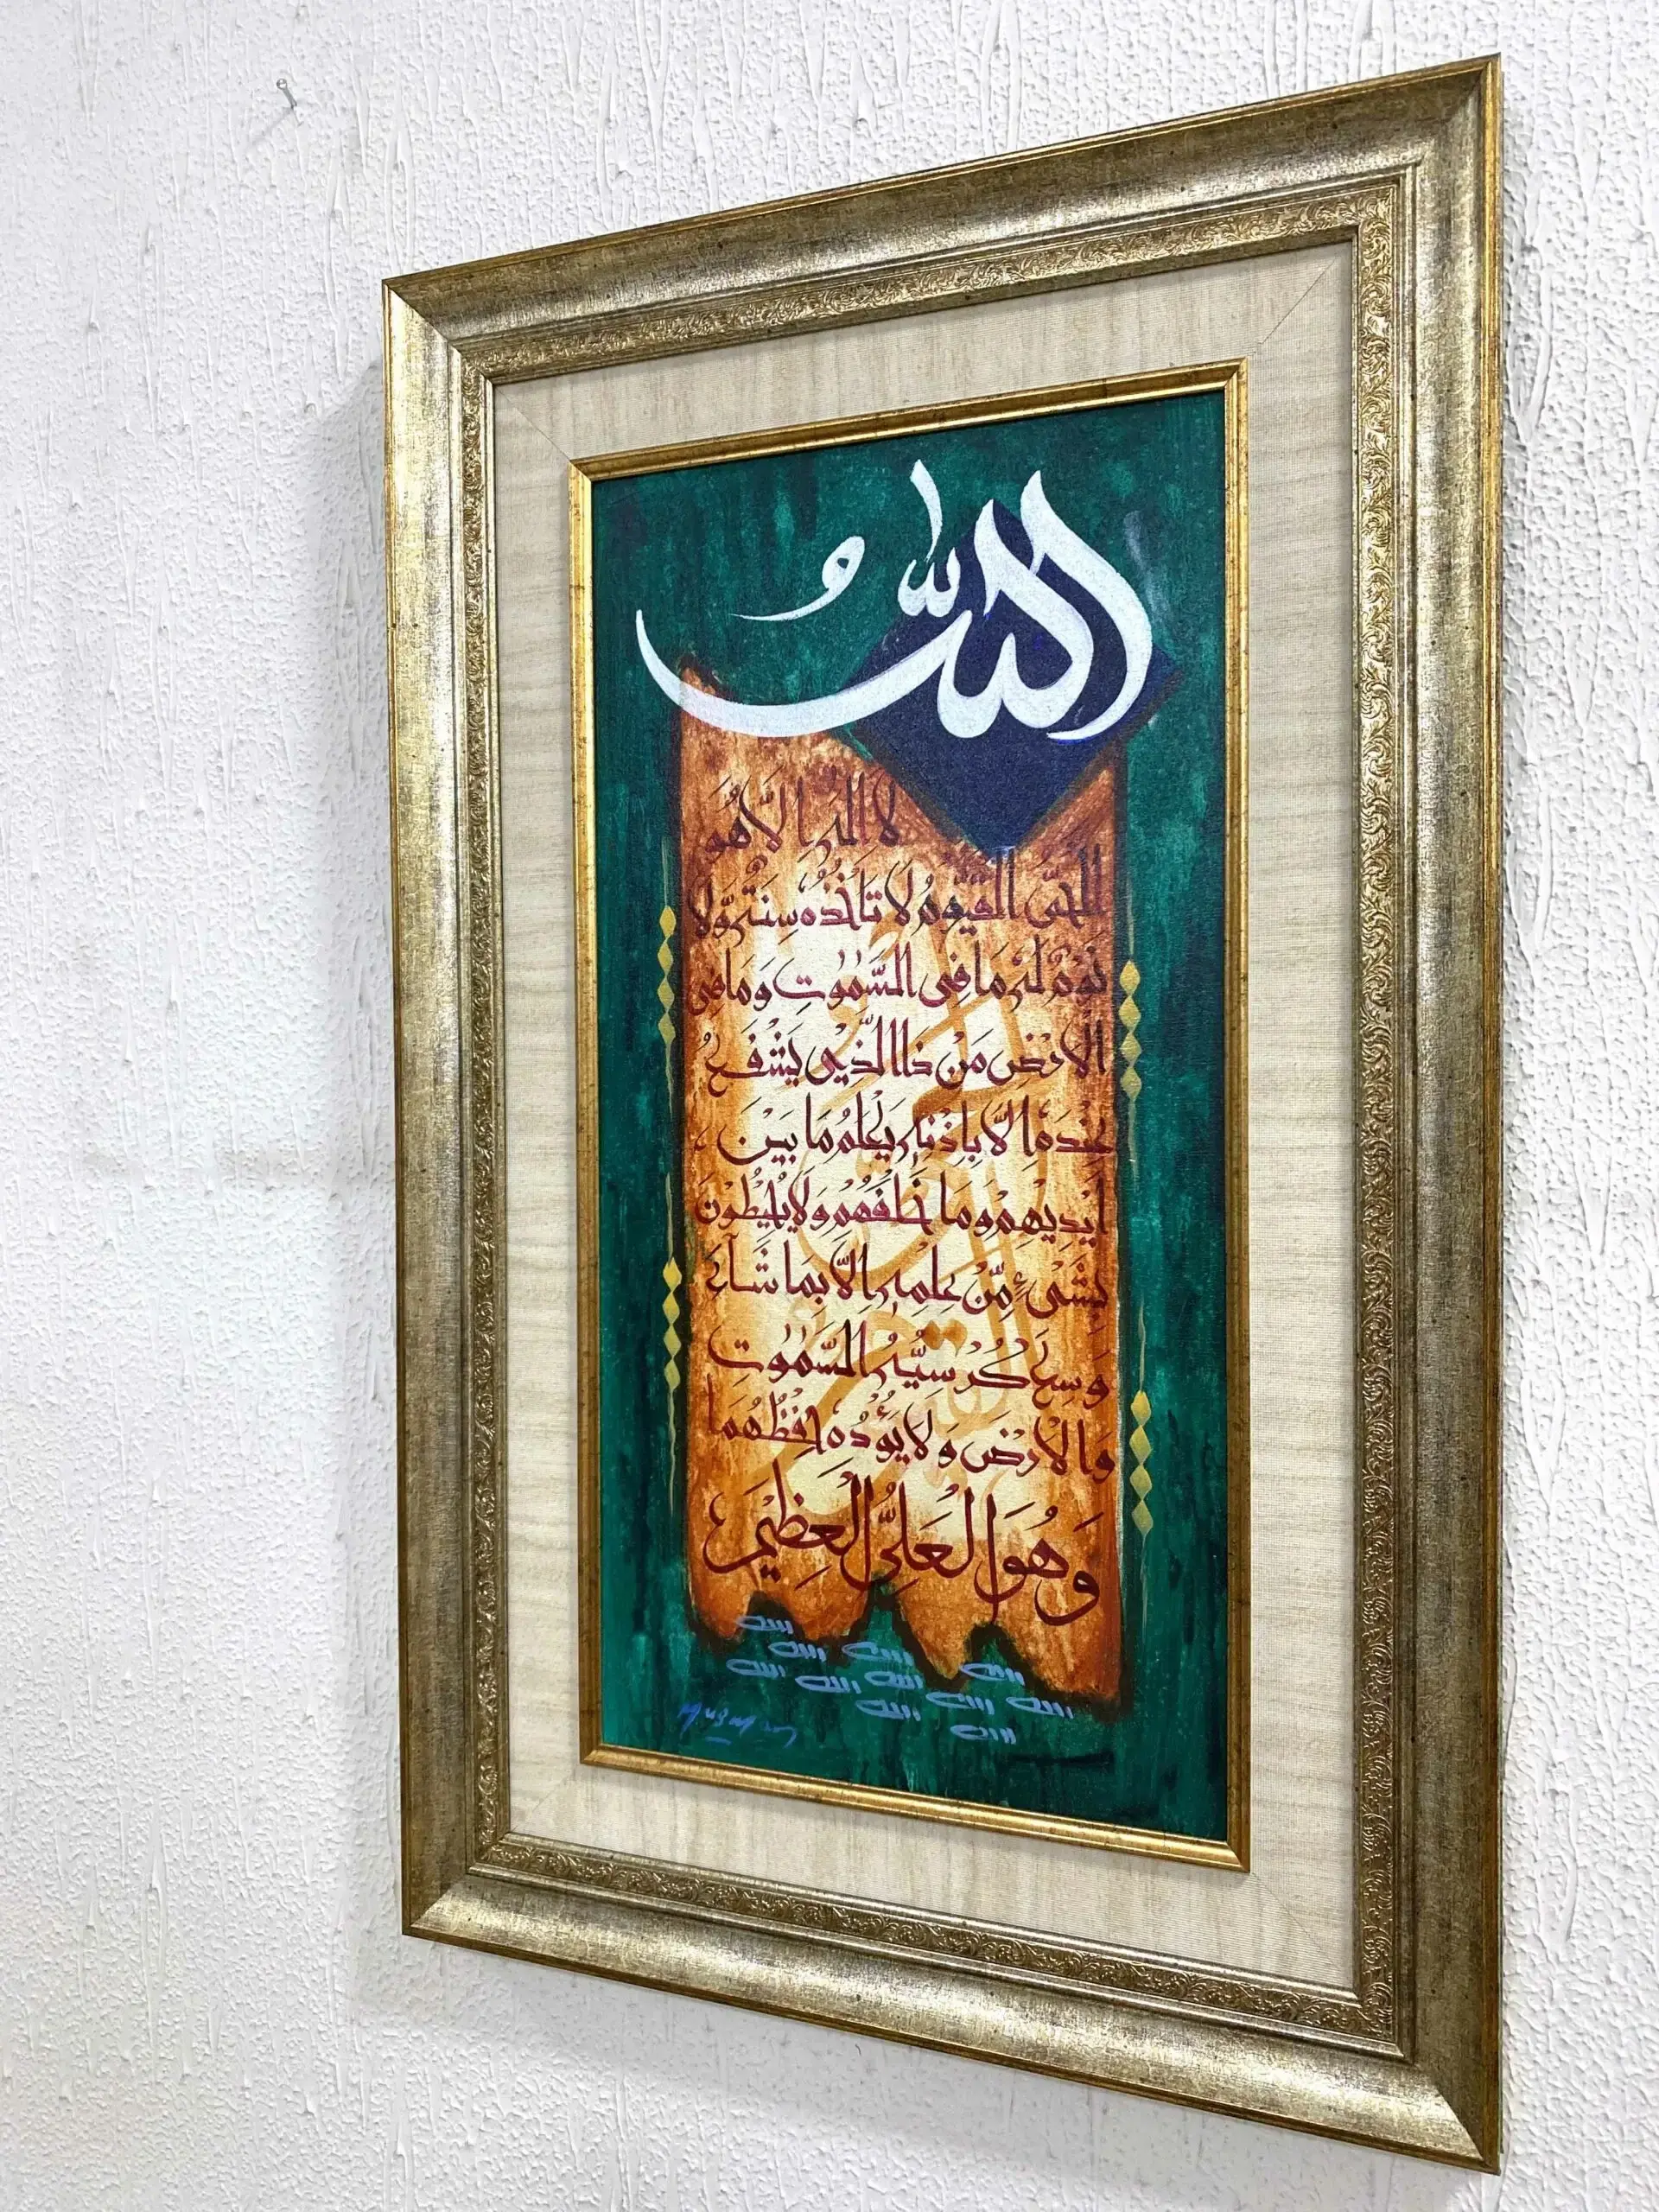 اللهُ
لا اله الّا هُوَ
الحَىُّ القَيُّومُ لا تَأخُذُه سِنَةٌ وَّلا
نَومٌ لَه مَا فِى السَّمٰوٰتِ وَمَا فِى
الاَرْضِ مَنْ ذَا الَّذِىْ يَشْفَعُ
عِنْدَه الَّا بِاِذْنِه يَعْلَمُ مَا بَيْنَ
اَيْدِيْهِمْ وَمَا خَلْفَهُمْ وَلَا يُحِيْطُوْنَ
بِشَىْءٍ مِّنْ عِلْمِه الَّا بِمَا شَآءَ
وَسِعَ كُرْسِيُّهُ السَّمٰوٰتِ
وَالاَرْضَ وَلَا يَؤُدُه حِفْظُهُمَا
وَهُوَ الْعَلِىُّ الْعَظِيْمُ
الله
الله الله
الله الله الله الله
الله الله الله
الله